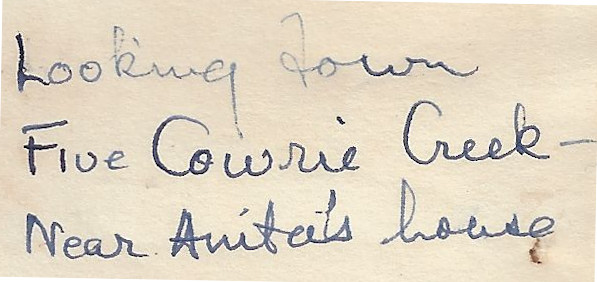 Looking down
Five Cowrie Creek -
Near Anita's house